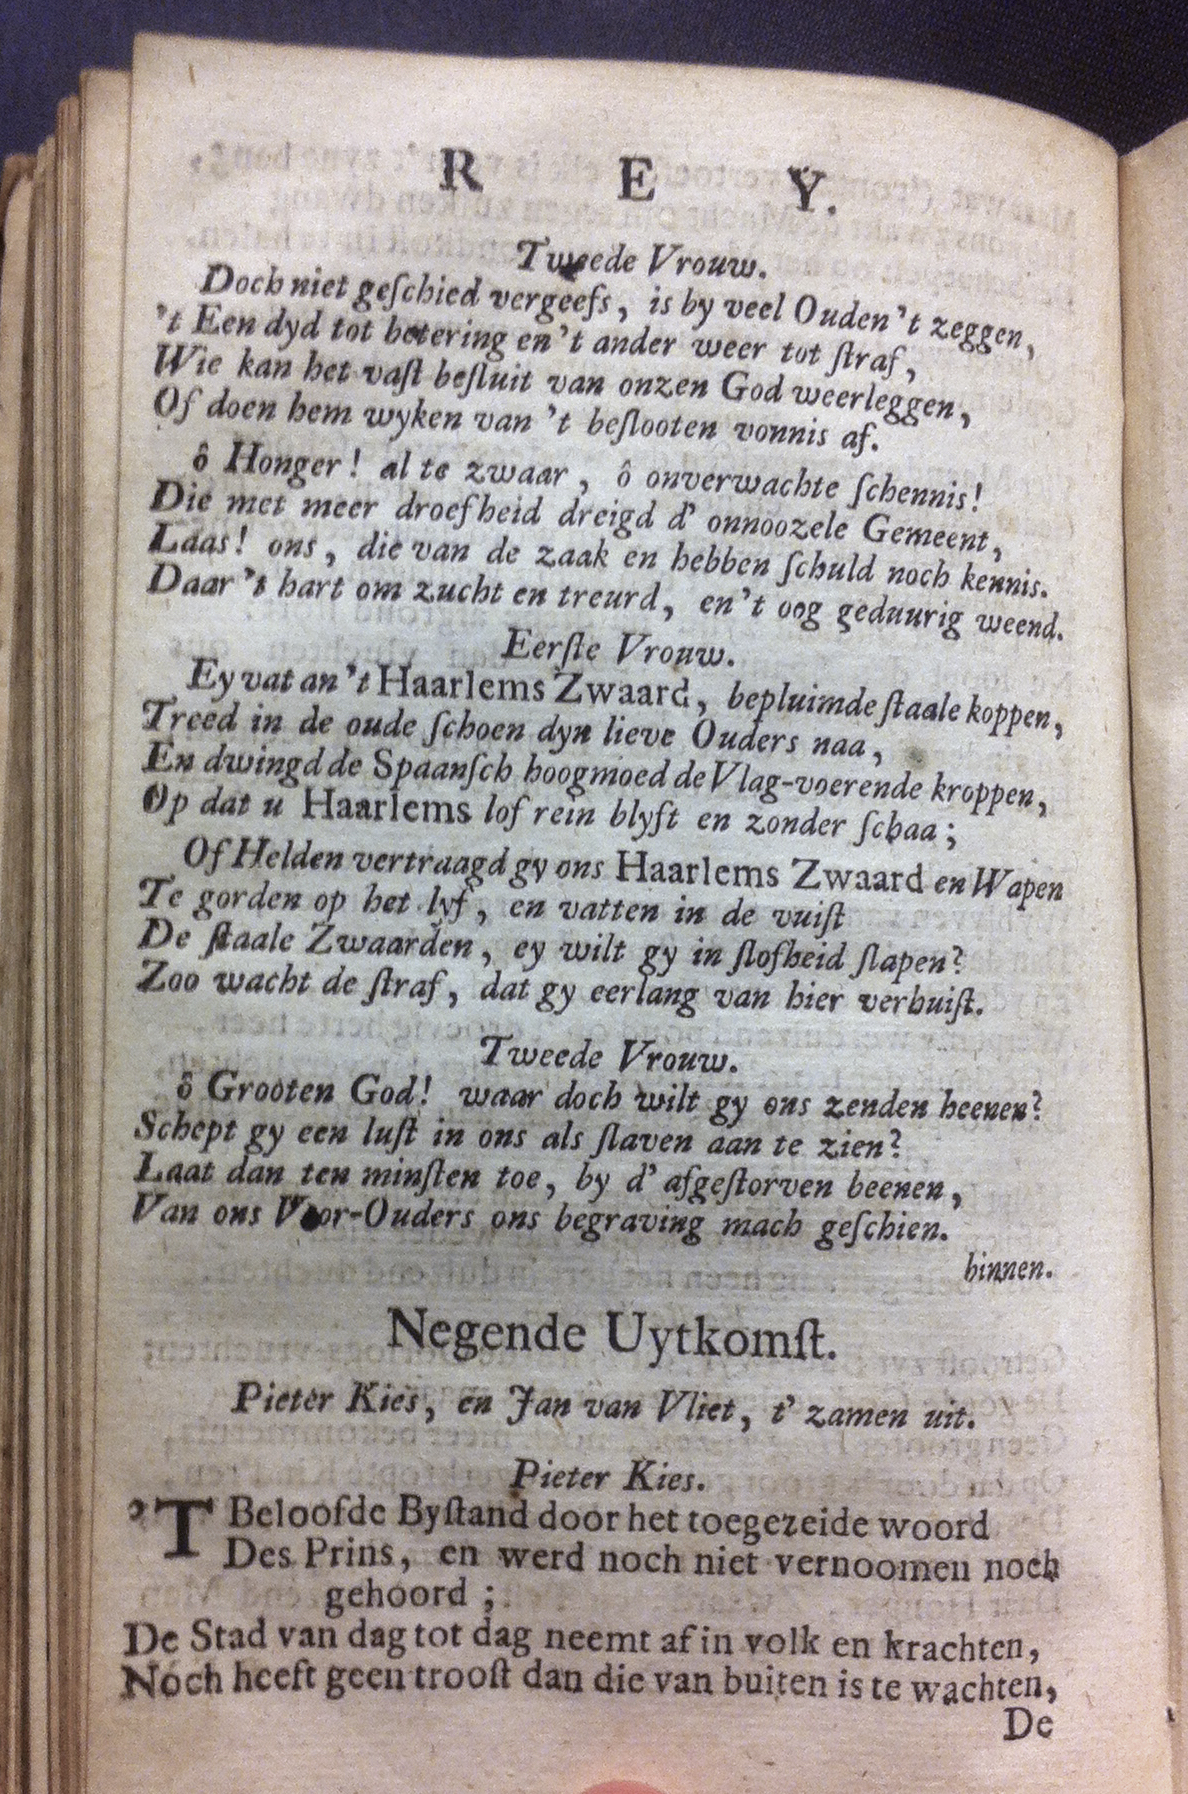 R E Y.
Tweede Vrouw.
Doch niet geſchied vergeefs, is by veel Ouden 't zeggen,
't Een dyd tot betering en 't ander weer tot ſtraf,
Wie kan het vaſt beſluit van onzen God weerleggen,
Of doen hem wyken van 't beſlooten vonnis af.
ô Honger! al te zwaar, ô onverwachte ſchennis!
Die met meer droefheid dreigd d' onnoozele Gemeent,
Laas! ons, die van de zaak en hebben ſchuld noch kennis.
Daar 't hart om zucht en treurd, en 't oog geduurig weend.
Eerſte Vrouw.
Ey vat an 't Haarlems Zwaard, bepluimde ſtaale koppen,
Treed in de oude ſchoen dyn lieve Ouders naa,
En dwingd de Spaanſch hoogmoed de Vlag-voerende kroppen,
Op dat u Haarlems lof rein blyft en zonder ſchaa;
Of Helden vertraagd gy ons Haarlems Zwaard en Wapen
Te gorden op het lyf, en vatten in de vuiſt
De ſtaale Zwaarden, ey wilt gy in ſlofheid ſlapen?
Zoo wacht de ſtraf, dat gy eerlang van hier verhuiſt.
Tweede Vrouw.
ô Grooten God! waar doch wilt gy ons zenden heenen?
Schept gy een luſt in ons als ſlaven aan te zien?
Laat dan ten minſten toe, by d' afgeſtorven beenen,
Van ons Voor-Ouders ons begraving mach geſchien.
binnen.
Negende Uytkomſt.
Pieter Kies, en Jan van Vliet, t' zamen uit.
Pieter Kies.
'T Beloofde Byſtand door het toegezeide woord
Des Prins, en werd noch niet vernoomen noch
gehoord;
De Stad van dag tot dag neemt af in volk en krachten,
Noch heeft geen trooſt dan die van buiten is te wachten,
De